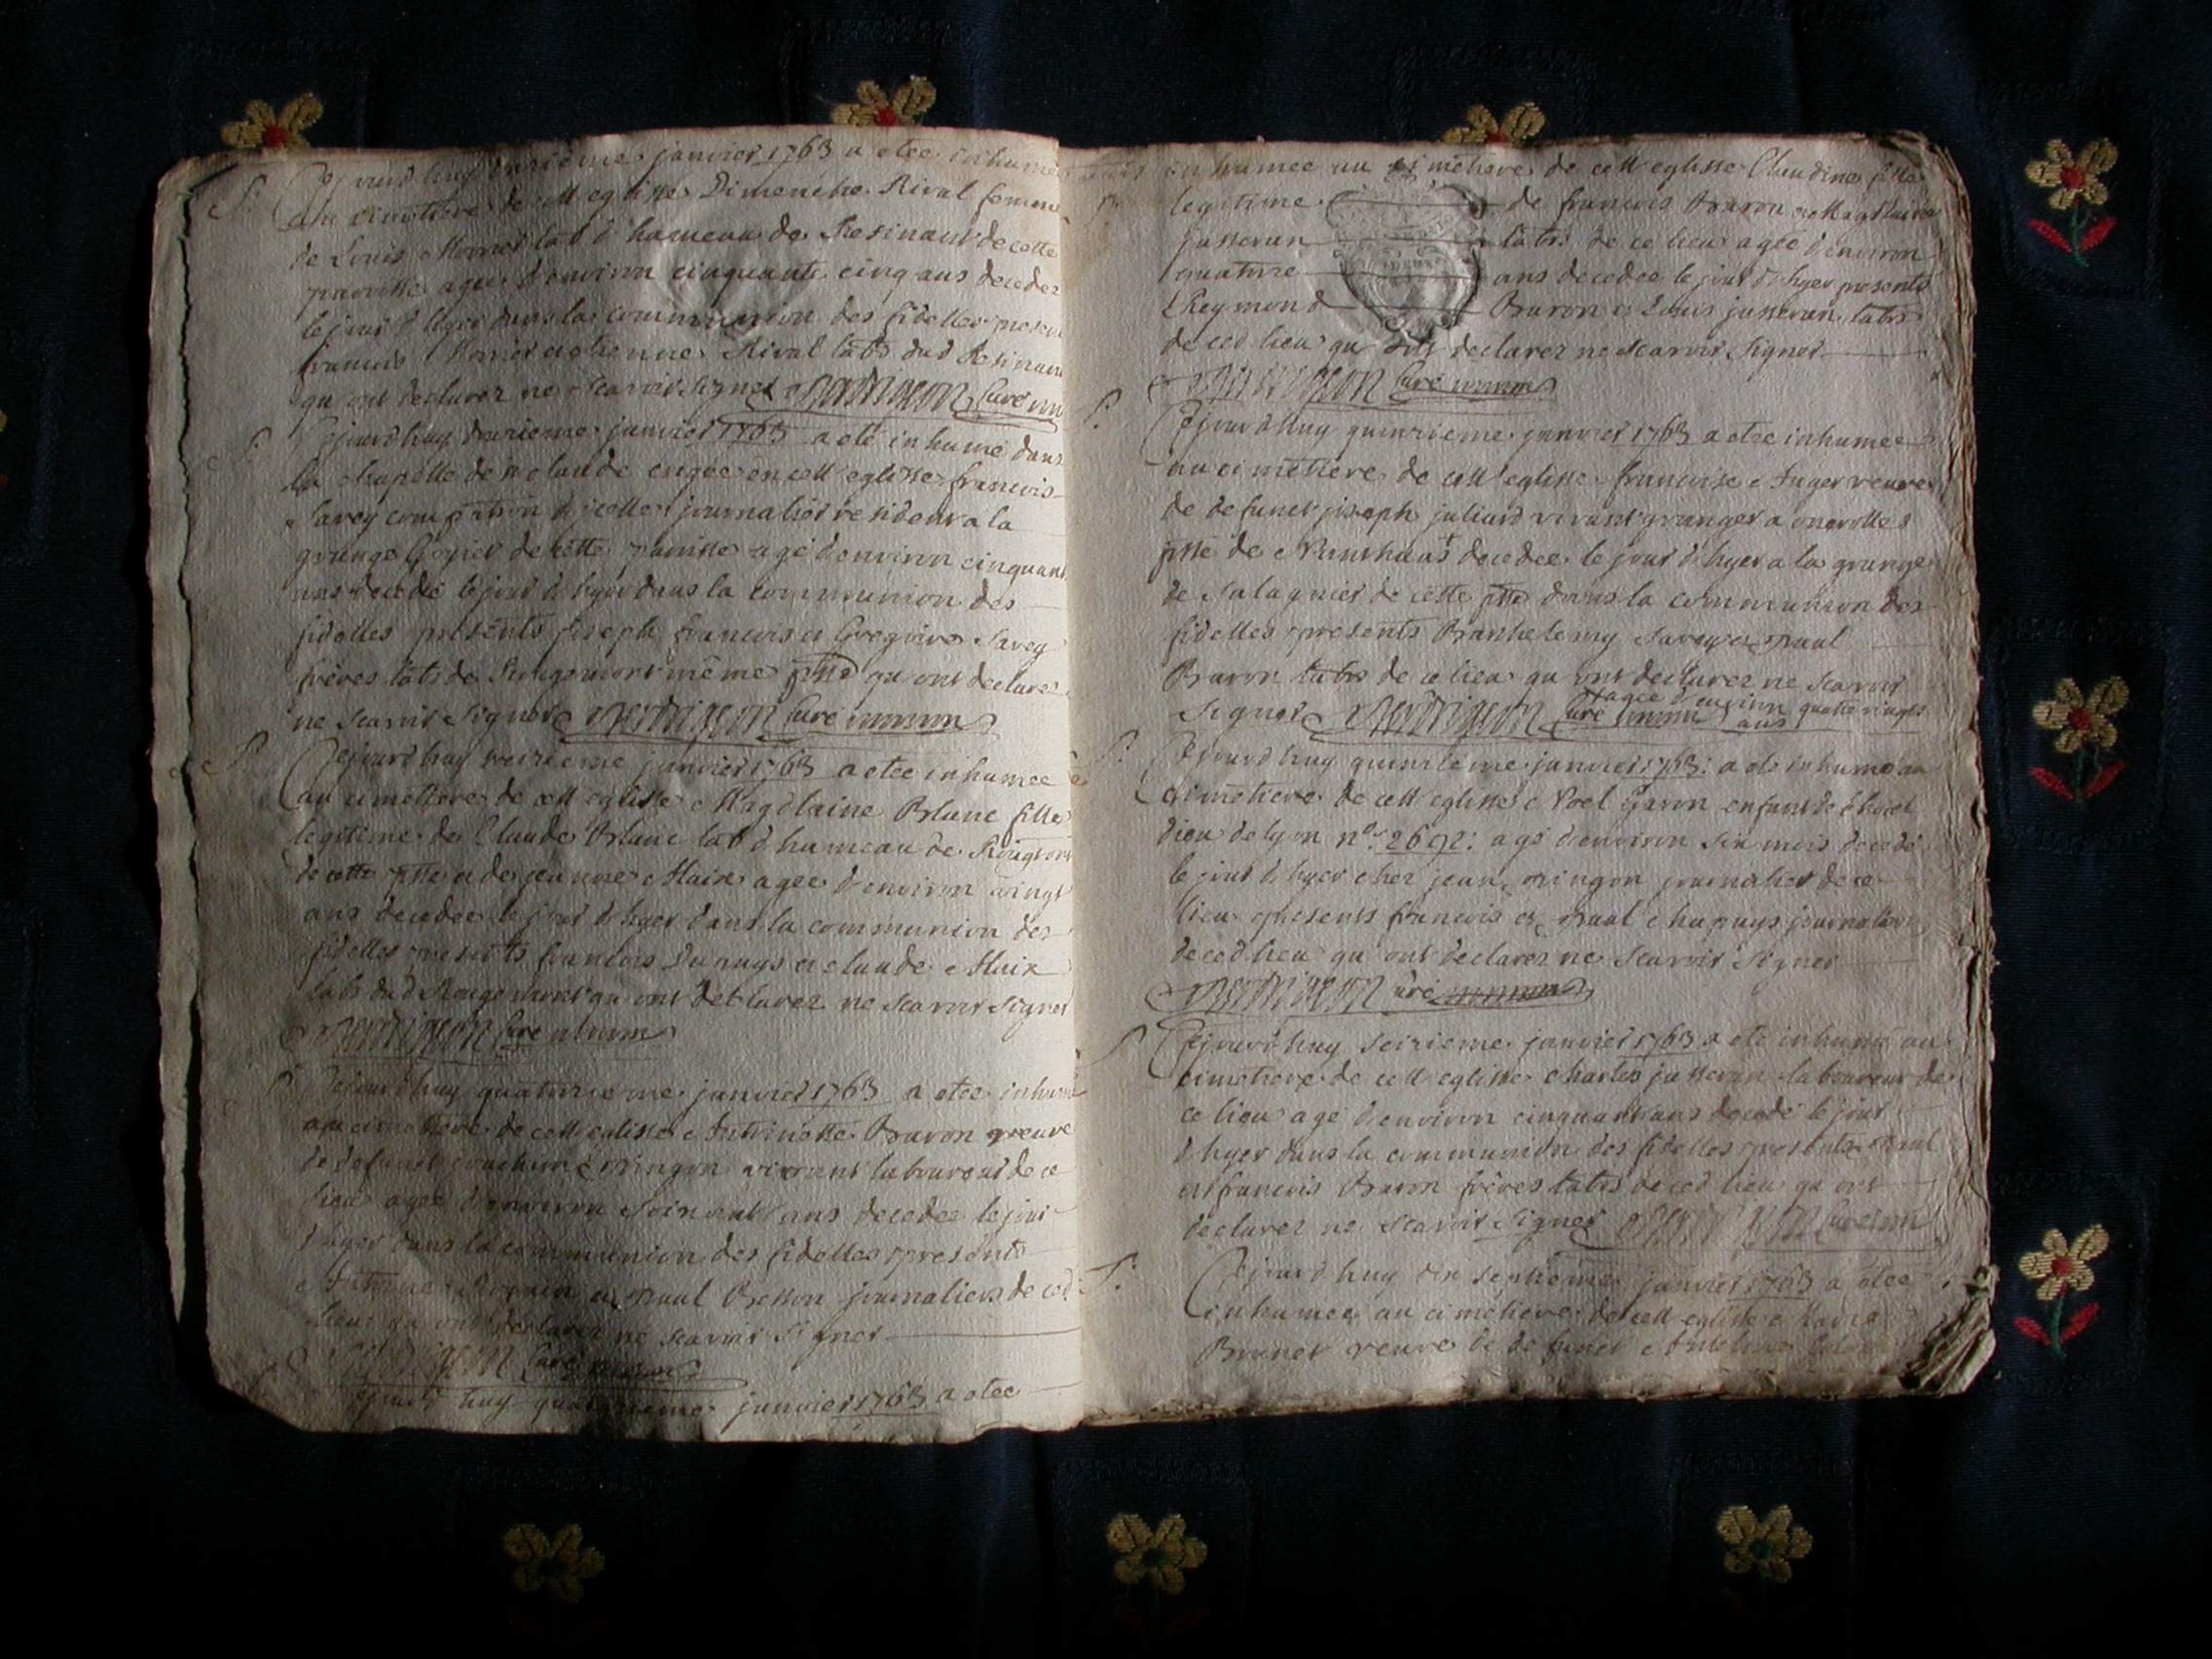 S.
janvier 1763 a etee inhumée
au cimetiere de cett eglisse Dimenche Rival femme
de Louis lab d'hameau de Resinaur de cette
paroisse agee d'environ cinquante cinq ans decedee
le jour d'hyer dans la communion des fidelles
francois Rival labs dud
qui ont declarez ne scavoir signer curé
S.
Cejourdhuy douzieme janvier 1763 a eté inhumé dans
la chapelle de st claude erigée en cett eglisse francois
Savey d'jcelle journalier residant a la
grange de cette paroisse agé d'environ cinquante
ans decedé le jour d'hyer dans la communion des
fidelles presents joseph francois et Gregoire Savey
freres labs de Rougemont même psse qui ont declarez
ne scavoir signer curé
S.
Cejourdhuy treizieme janvier 1763 a etee inhumee
au cimettere de cett eglisse Magdlaine Blanc fille
legitime de Claude Blanc lab d'hameau de Rougemont
de cette psse et de jeanne agee d'environ vingt
ans decedee le jour d'hyer dans la communion des
fidelles presents francois Dupuys et claude
labs dud Rougemont qui ont declarez ne scavoir signer
curé
S.
Cejourdhuy quatorzieme janvier 1763 a etee inhumé
au cimetiere de cett eglisse Antoinette Baron veuve
de defunct vivant laboureur de ce
lieu agee d'environ soixante ans decedee le jour
d'hyer dans la communion des fidelles presents
Antoine et paul journaliers de ced
lieu qui ont declarez ne scavoir signer
curé
Cejourdhuy quatorzieme janvier 1763 a etee
inhumee au cimetiere de cett eglisse Claudine fille
legitime de francois Baron et Magdlaine
jusseran labs de ce lieu agée d'environ
quatorze ans decedee le jour d'hyer presents
Reymond Baron et Louis jusseran labs
de ced lieu qui ont declarez ne scavoir signer
curé
S.
Cejourdhuy quinzieme janvier 1763 a etee inhumee
au cimetiere de cett eglisse francoise Auger veuve
de defunct joseph juliard vivant granger a
psse de decedee le jour d'hyer a la grange
de Salagnier de cette psse dans la communion des
fidelles presents Barthelemy Savey et paul
Baron labs de ce lieu qui ont declarez ne scavoir
signer curé agee d'environ quatre vingts
ans
S.
Cejourdhuy quinzieme janvier 1763: a ete inhumé au
cimetiere de cett eglisse Noel Garon enfant de l'hotel
dieu de lyon no. 2692: agé d'environ six mois decedé
le jour d'hyer chez jean journalier de ce
lieu presents francois et paul chapuys journaliers
de ced lieu qui ont declarez ne scavoir signer
curé
S.
Cejourdhuy seizieme janvier 1763 a ete inhumé au
cimetiere de cett eglisse charles jusseran laboureur de
ce lieu agé d'environ cinquante ans decedé le jour
d'hyer dans la communion des fidelles presents paul
et francois Baron freres labs de ced lieu qui ont
declarez ne scavoir signer curé
S.
Cejourdhuy dix septieme janvier 1763 a etee
inhumee au cimetiere de cett eglisse Marie
Brunet veuve de defunct